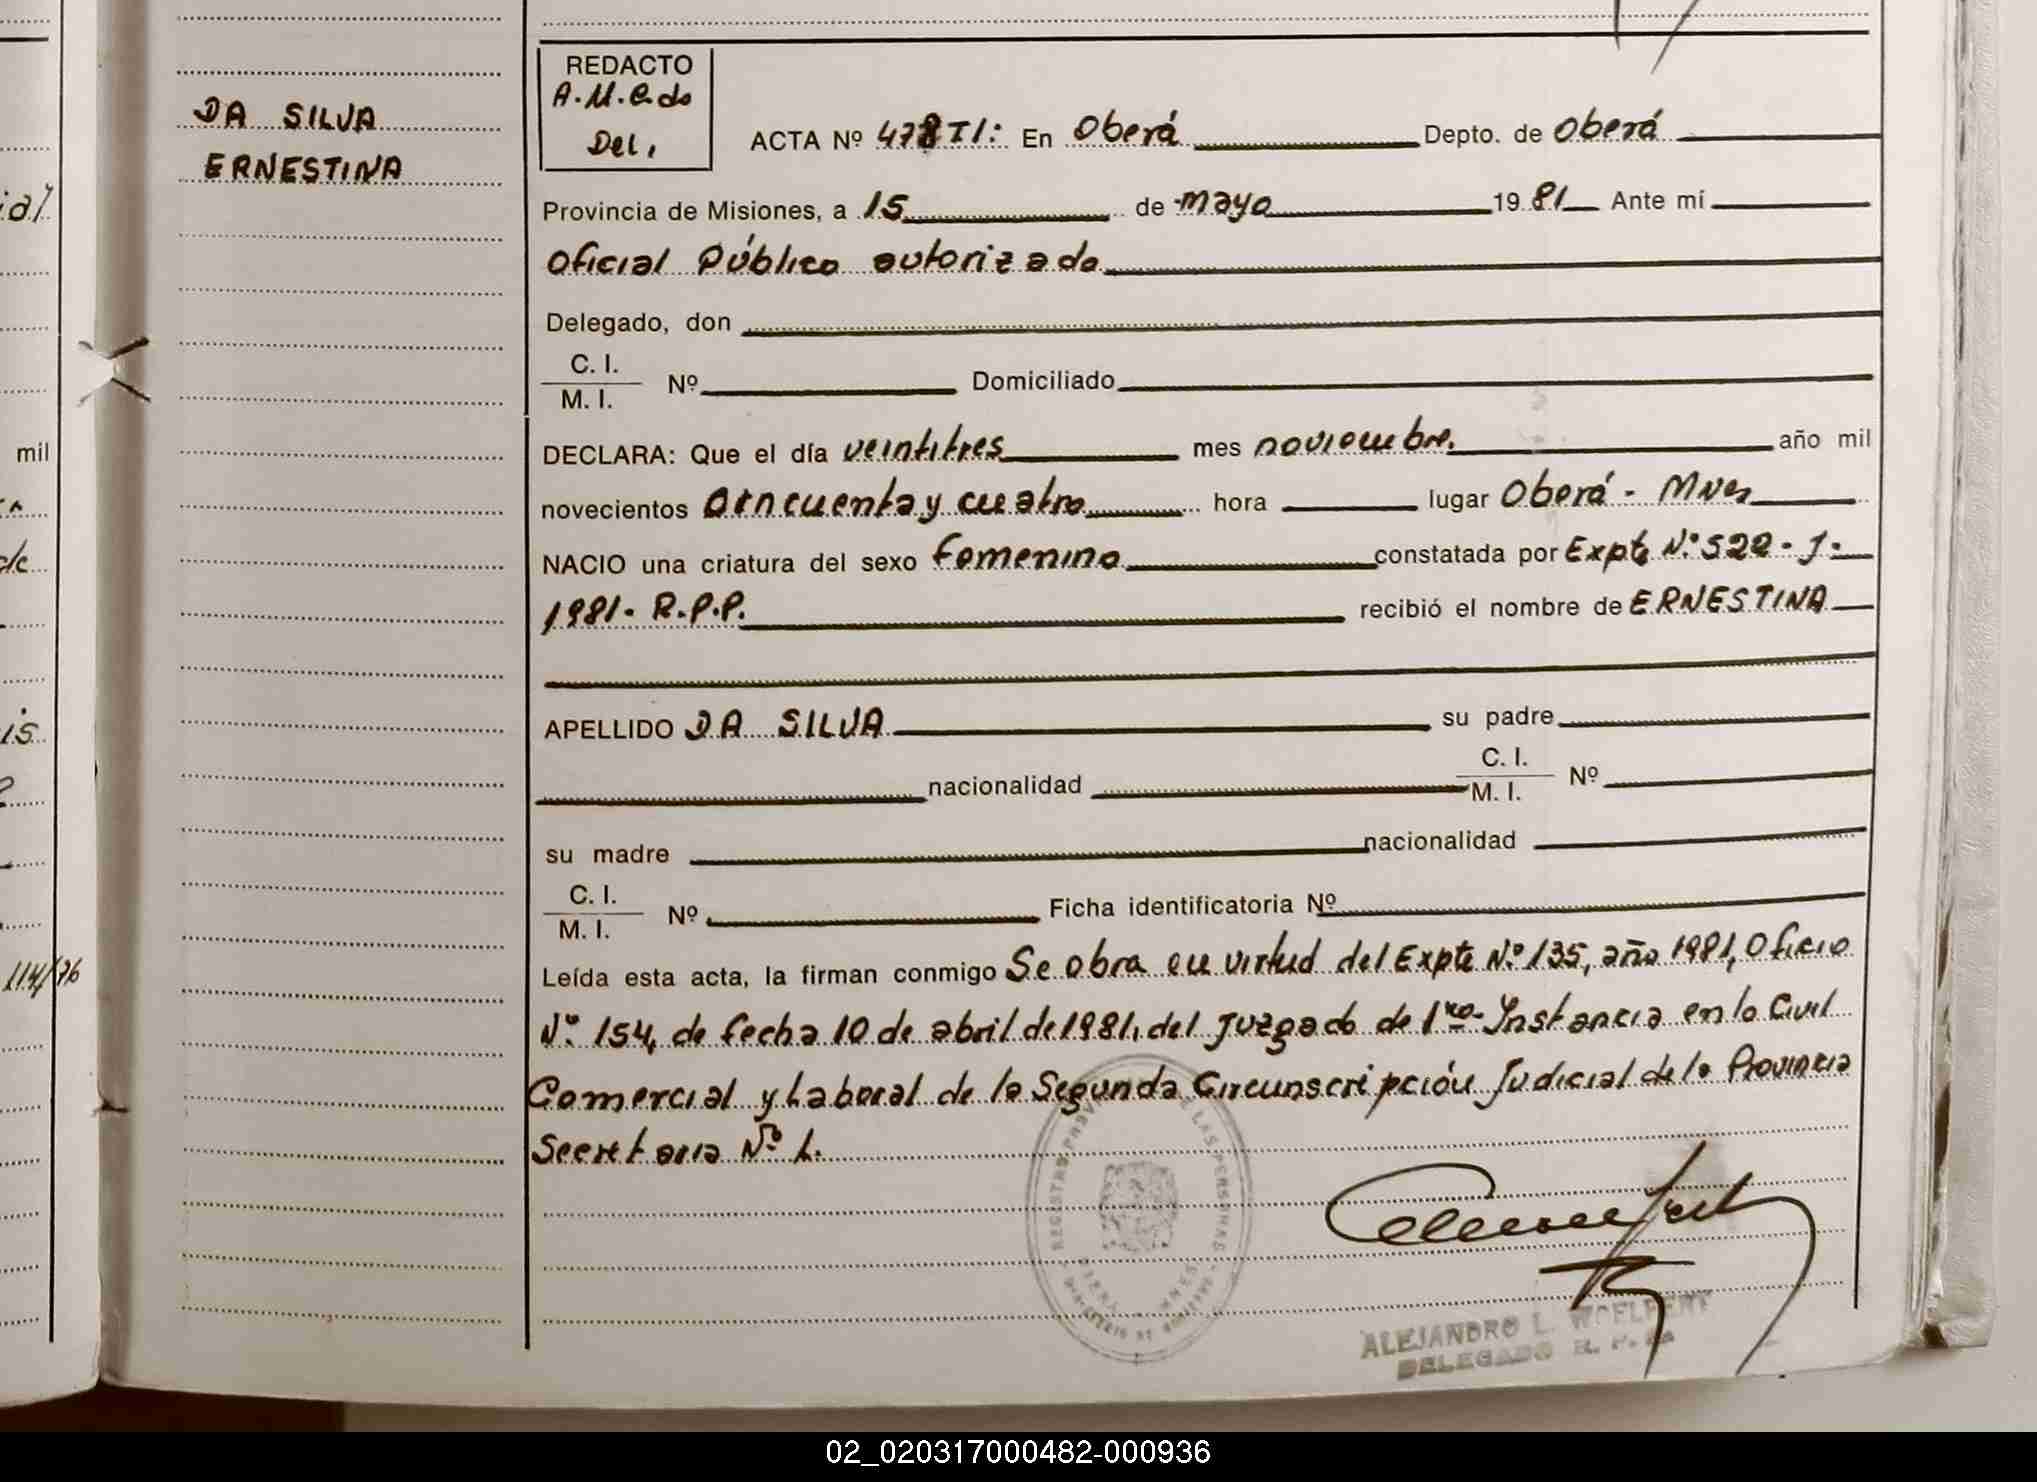 DA SILVA
ERNESTINA
ial
mil
is
114/76
REDACTO
A.M.C.do
Del,
ACTA Nº 478 TI: En Oberá Depto. de Oberá
Provincia de Misiones, a 15 de mayo 19 81 Ante mí
Oficial Público autorizado
Delegado, don
C. I.
M. I. Nº Domiciliado
DECLARA: Que el día veintitres mes noviembre. año mil
novecientos cincuenta y cuatro hora lugar Oberá - Mnes
NACIO una criatura del sexo femenino constatada por Expte Nº 522 - J.
1981 - R.P.P. recibió el nombre de ERNESTINA
APELLIDO DA SILVA su padre
nacionalidad C. I.
M. I. Nº
su madre nacionalidad
C. I.
M. I. Nº Ficha identificatoria Nº
Leída esta acta, la firman conmigo Se obra en virtud del Expte Nº 135, año 1981, Oficio
Nº 154, de fecha 10 de abril de 1981, del Juzgado de 1ra. Instancia en lo Civil
Comercial y Laboral de la Segunda Circunscripción Judicial de la Provincia
Secretaria Nº 1.
ALEJANDRO L.
DELEGADO
02_020317000482-000936